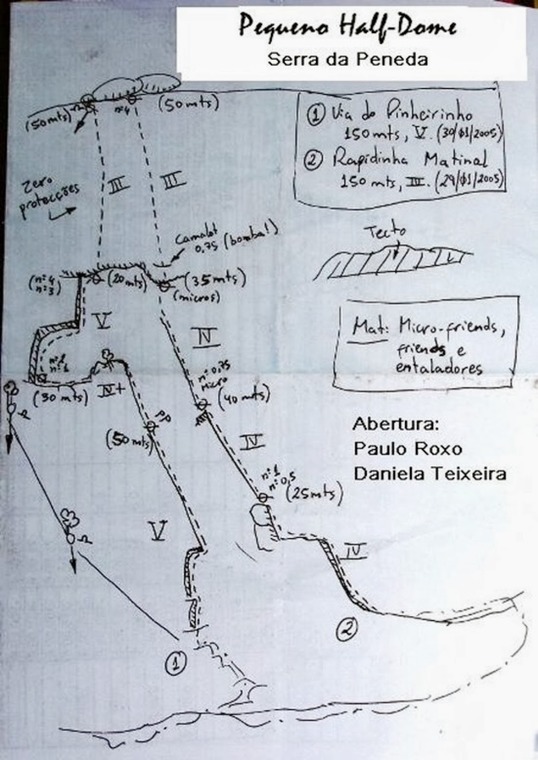 Pequeno Half-Dome
Serra da Peneda
① Via do Pinheirinho
150 mts, V. (30/01/2005)
② Rapidinha Matinal
150 mts, III. (29/01/2005)
(50mts)
nº4
(50 mts)
III
III
Zero
protecções
Camalot
0.75 (bomba!)
Tecto
(nº4
nº3)
(20mts)
(35 mts)
(micros)
V
IV
Mat: Micro-friends,
friends e
entaladores
nº2
nº1
(30 mts)
IV+
nº0,75
micro
(40 mts)
PP
(50 mts)
IV
Abertura:
Paulo Roxo
Daniela Teixeira
nº1
nº0,5
(25 mts)
V
IV
②
①